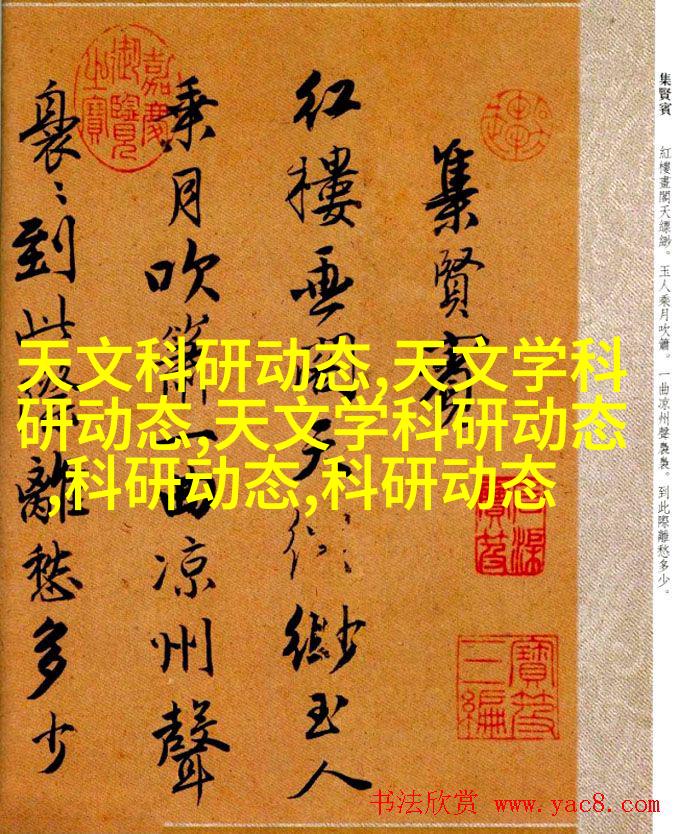 集賢賓 紅樓畫閣天縹緲。玉人乘月吹簫。一曲凉州聲裊裊。到此際離愁多少。
集賢賓
紅樓畫閣天縹緲玉人
乘月吹簫一曲凉州聲
裊〻到此際離愁多少
嘉慶御覽之寶
石渠寶笈
寶笈三編
天文科研动态,天文学科
研动态,天文学科研动态
,科研动态,科研动态
书法欣赏 www.yac8.com